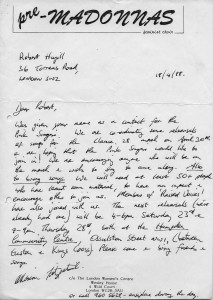 pre-MADONNAS
FEMINIST CHOIR
Robert Hugill
36 Torrens Road,
LONDON SW2
18/4/88.
Dear Robert,
I was given your name as a contact for the
Pink Singers. We are co-ordinating some rehearsals
of songs for the clause 28 march on April 30th
and we hope that the Pink Singers would like to
join in! We are encouraging anyone who will be on
the march & wants to sing to come along.
to bring songs. We will need at least 50 people
who have learnt some material, to have an impact in
encouraging others to join us. Members of
have also joined with us. The next rehearsals (we've
already had one) will be 4-6pm Saturday 23rd &
7-9pm, Thursday 28th, both at the Hampden
Community Centre, Ossulston Street NW1, (between
Euston & Kings Cross). Please come & bring friends &
songs.
C/o The London Women's Centre
Wesley House
4 Wild Court
London WC2B 5AU